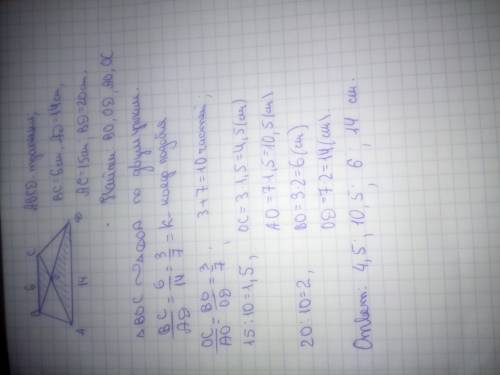 B 6 C
A 14 D
ABCD трапеция,
BC = 6 см, AD = 14 см,
AC = 15 см BD = 20 см.
Найти BO, OD, AO, OC
△BOC ∾ △DOA по двум углам.
BC/AD = 6/14 = 3/7 = k - коэф подобия
OC/AO = BO/OD = 3/7. 3+7=10 частей,
15:10=1,5, OC = 3·1,5=4,5(см)
AO = 7·1,5=10,5(см)
20:10=2, BO = 3·2=6(см)
OD = 7·2=14(см).
Ответ: 4,5; 10,5; 6; 14 см.